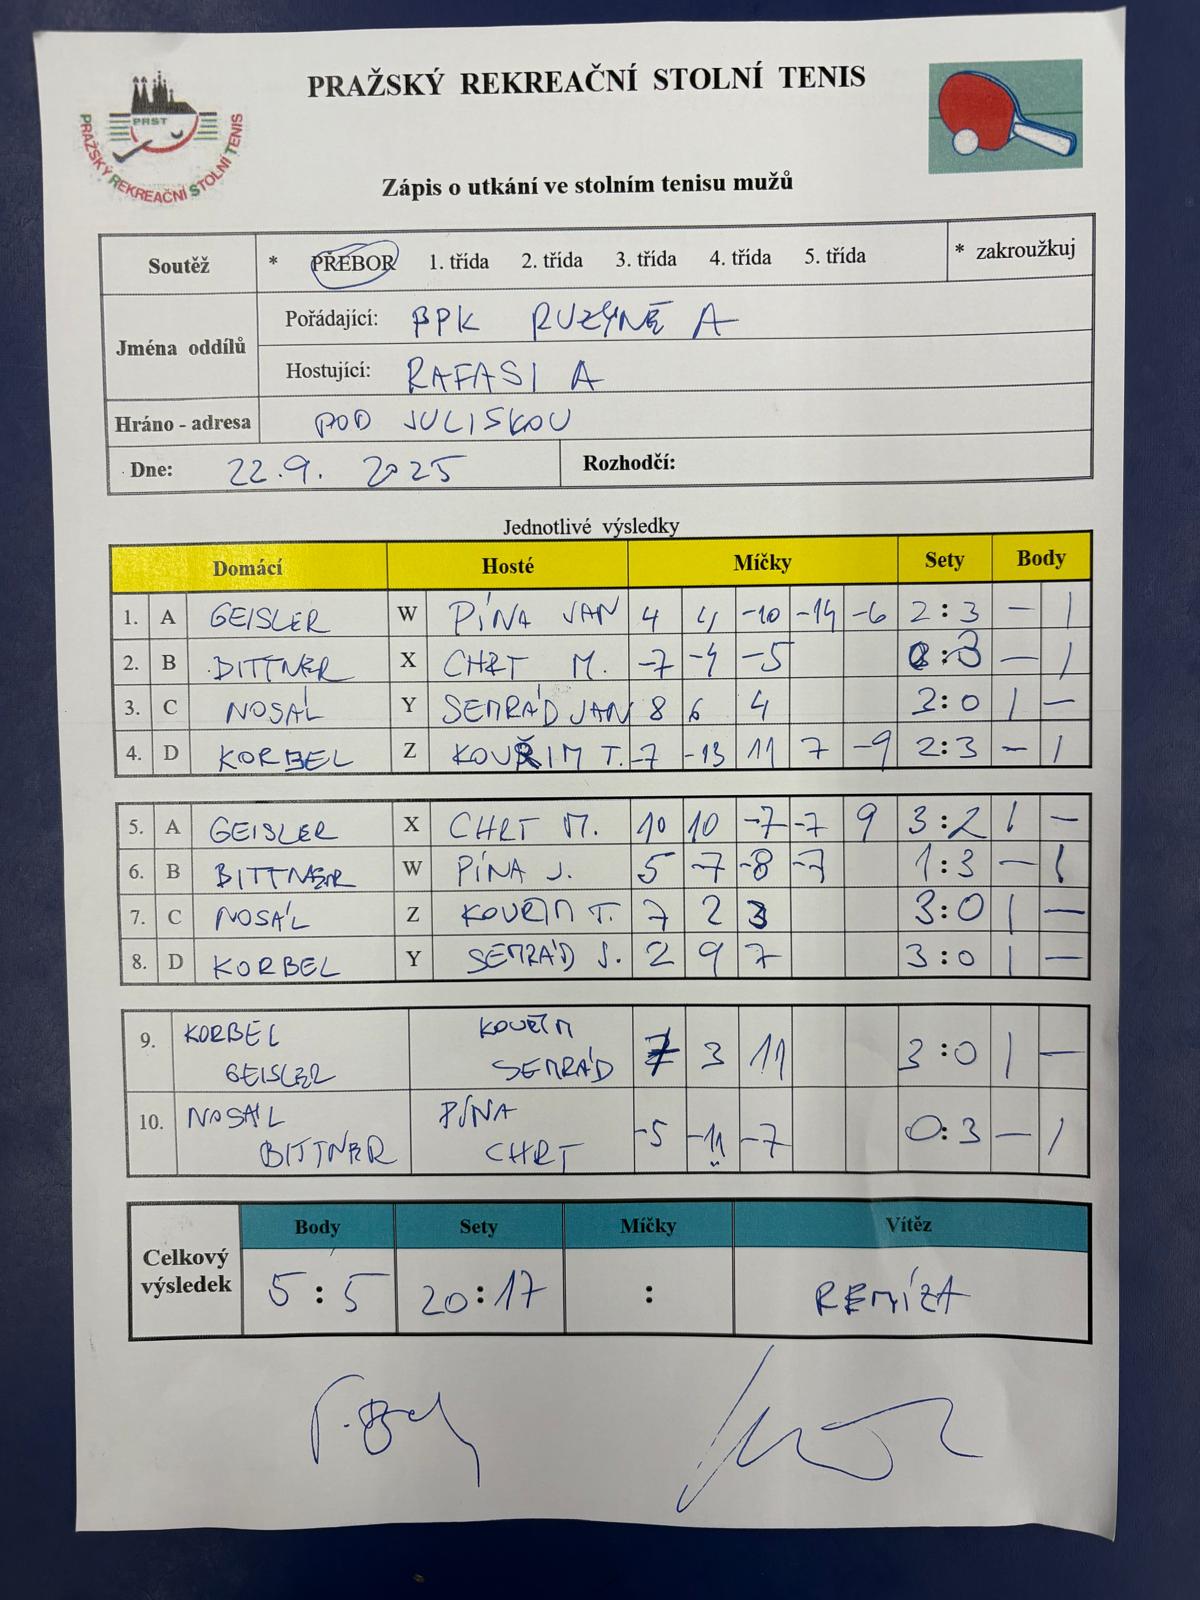 PRAŽSKÝ REKREAČNÍ STOLNÍ TENIS
PRST
PRAŽSKÝ REKREAČNÍ STOLNÍ TENIS
Zápis o utkání ve stolním tenisu mužů
Soutěž * PŘEBOR 1. třída 2. třída 3. třída 4. třída 5. třída * zakroužkuj
Jména oddílů
Pořádající: BPK RUZYNĚ A
Hostující: RAFASI A
Hráno - adresa POD JULISKOU
Dne: 22.9. 2025 Rozhodčí:
Jednotlivé výsledky
Domácí Hosté Míčky Sety Body
1. A GEISLER W PÍNA JAN 4 4 -10 -14 -6 2:3 – 1
2. B BITTNER X CHRT M. -7 -4 -5 0:3 – 1
3. C NOSÁL Y SEMRÁD JAN 8 6 4 3:0 1 –
4. D KORBEL Z KOUŘIM T. -7 -13 11 7 -9 2:3 – 1
5. A GEISLER X CHRT M. 10 10 -7 -7 9 3:2 1 –
6. B BITTNER W PÍNA J. 5 -7 -8 -7 1:3 – 1
7. C NOSÁL Z KOUŘIM T. 7 2 3 3:0 1 –
8. D KORBEL Y SEMRÁD J. 2 9 7 3:0 1 –
9. KORBEL GEISLER KOUŘIM SEMRÁD 7 3 11 3:0 1 –
10. NOSÁL BITTNER PÍNA CHRT -5 -11 -7 0:3 – 1
Celkový výsledek
Body Sety Míčky Vítěz
5:5 20:17 : REMÍZA